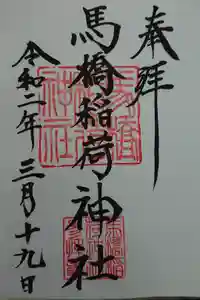 奉拝
馬橋稲荷神社
令和二年三月十九日